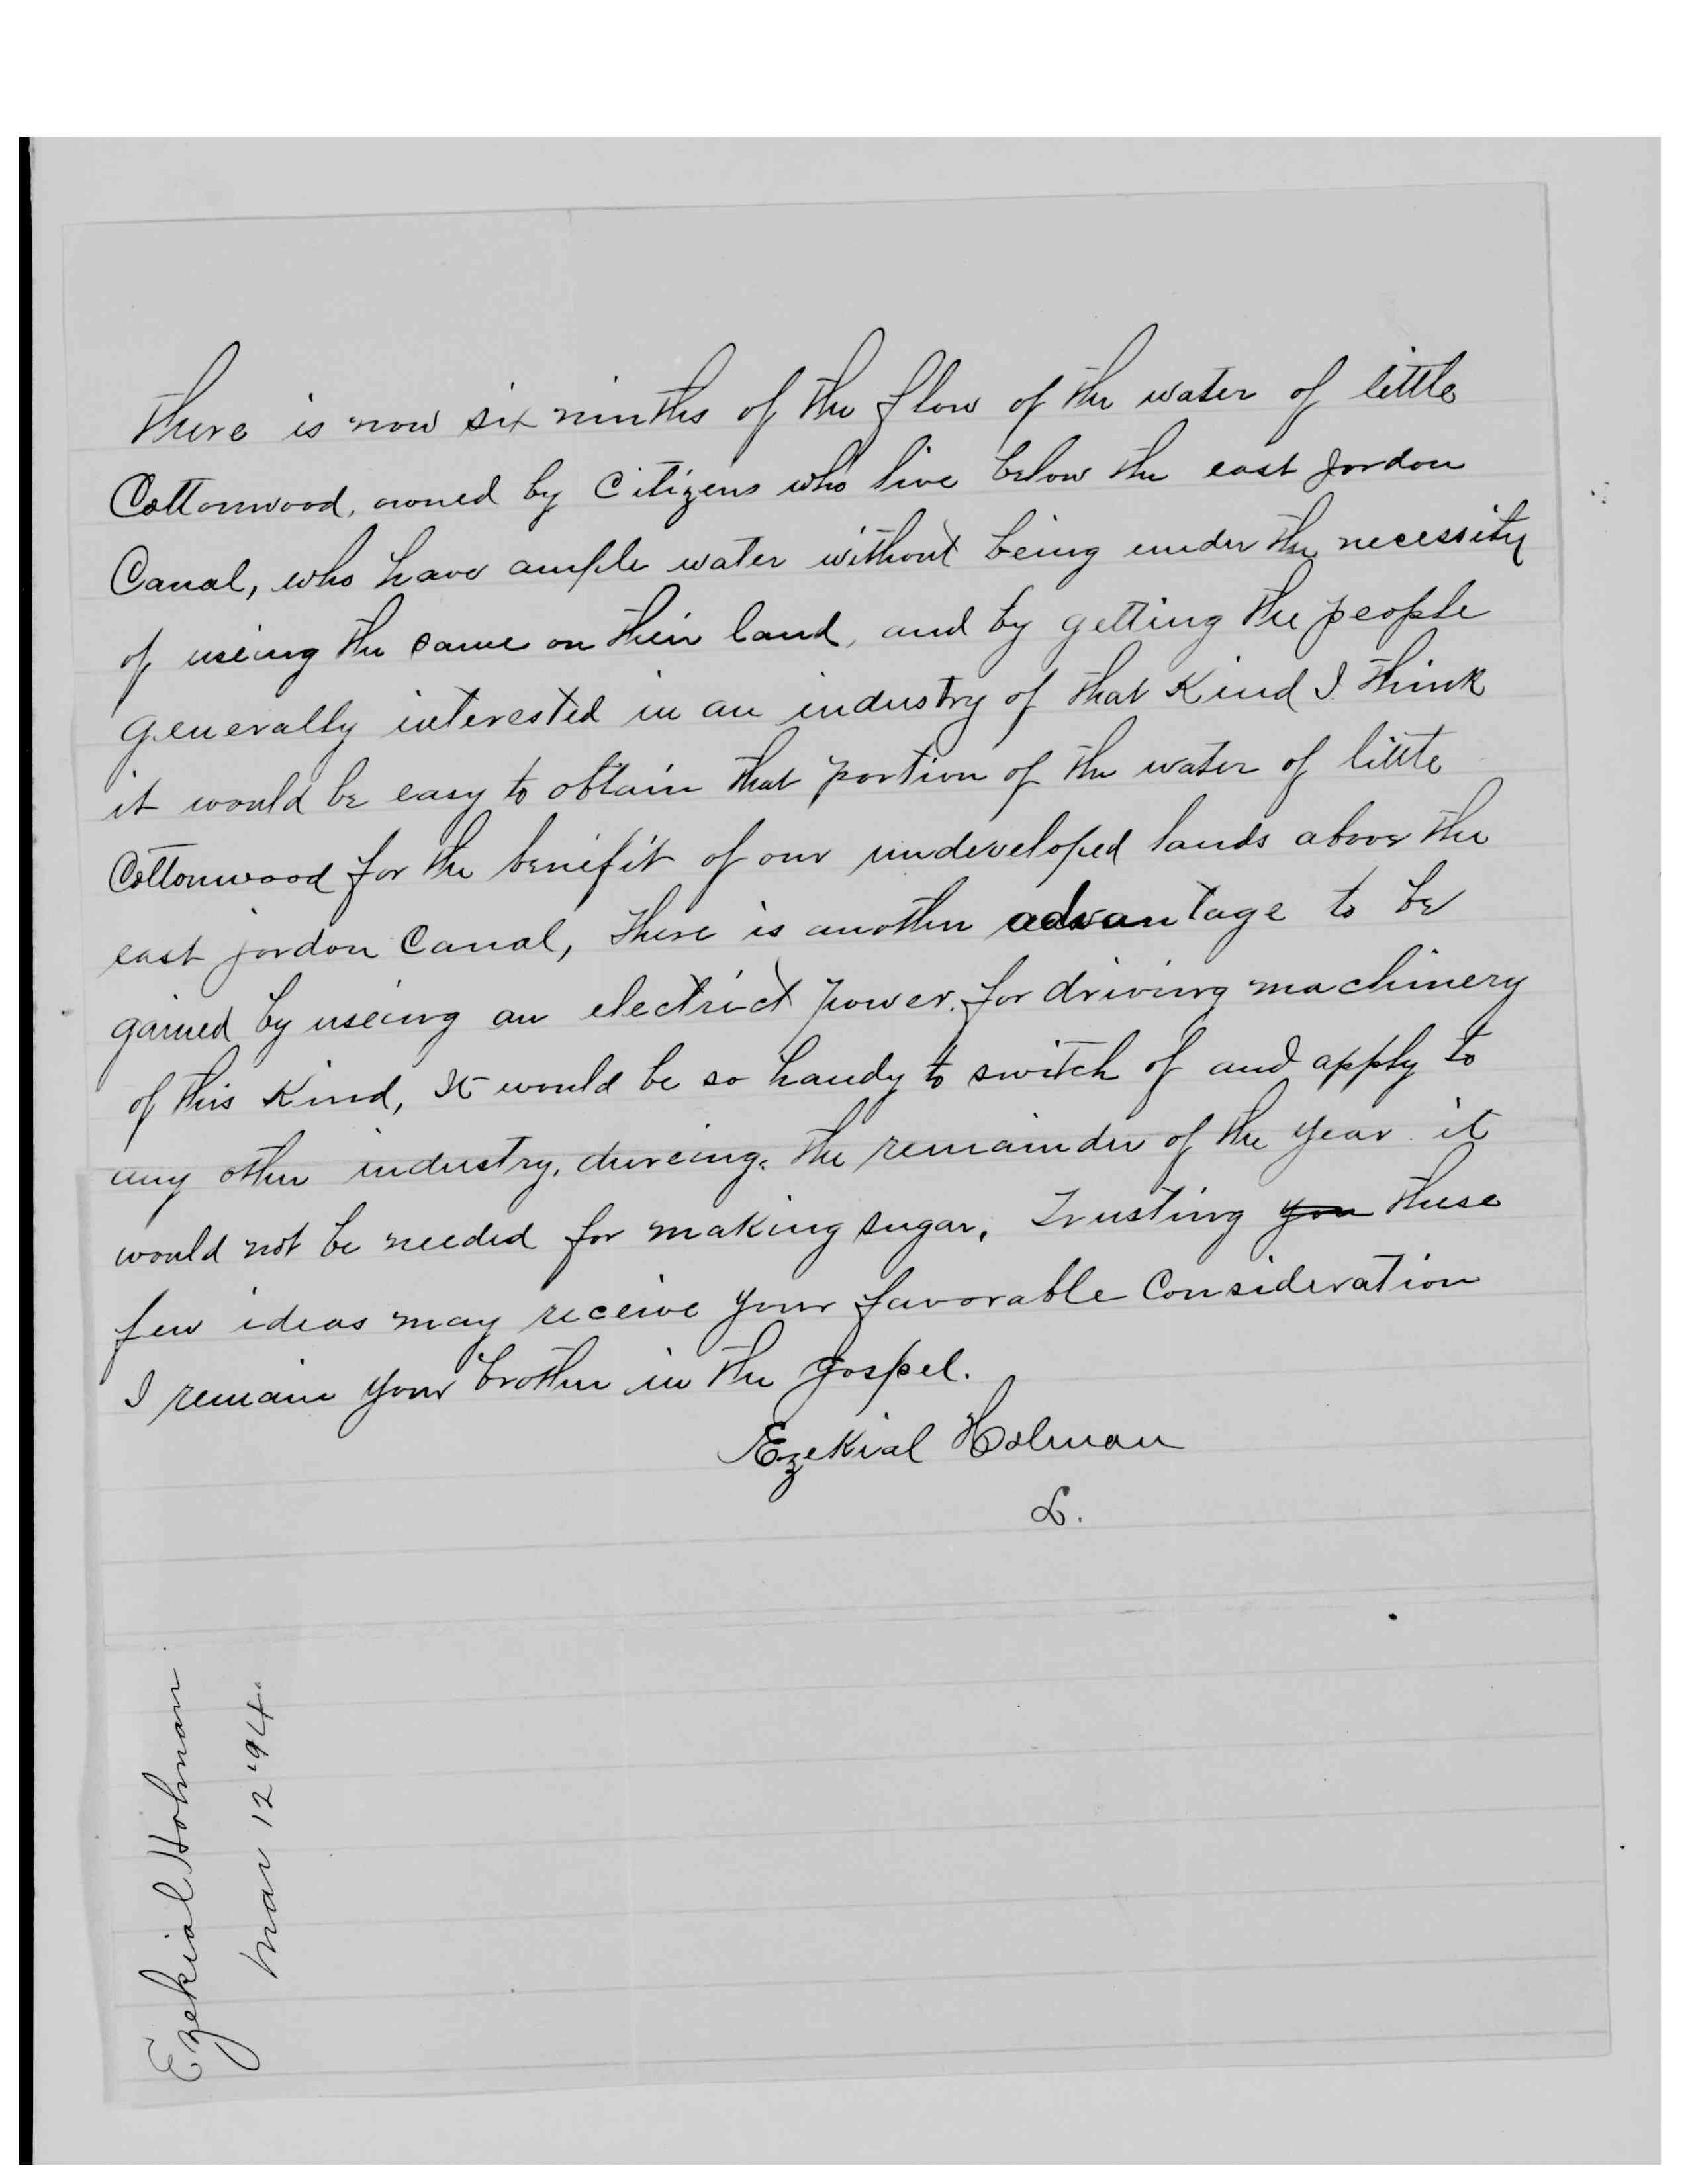 there is now six ninths of the flow of the water of little
Cottonwood, owned by Citizens who live below the east Jordon
Canal, who have ample water without being under the necessity
of useing the same on their land, and by getting the people
generally interested in an industry of that Kind I think
it would be easy to obtain that portion of the water of little
Cottonwood for the benifit of our undeveloped lands above the
east jordon Canal, there is another advantage to be
gained by useing an electrict power. for driving machinery
of this Kind, It would be so handy to switch of and apply to
any other industry, dureing. the remainder of the year it
would not be needed for making sugar. Trusting you these
few ideas may receive your favorable Consideration
I remain your brother in the gospel.
Ezekial Holman
L.
Ezekial Holman
Mar 12 '94